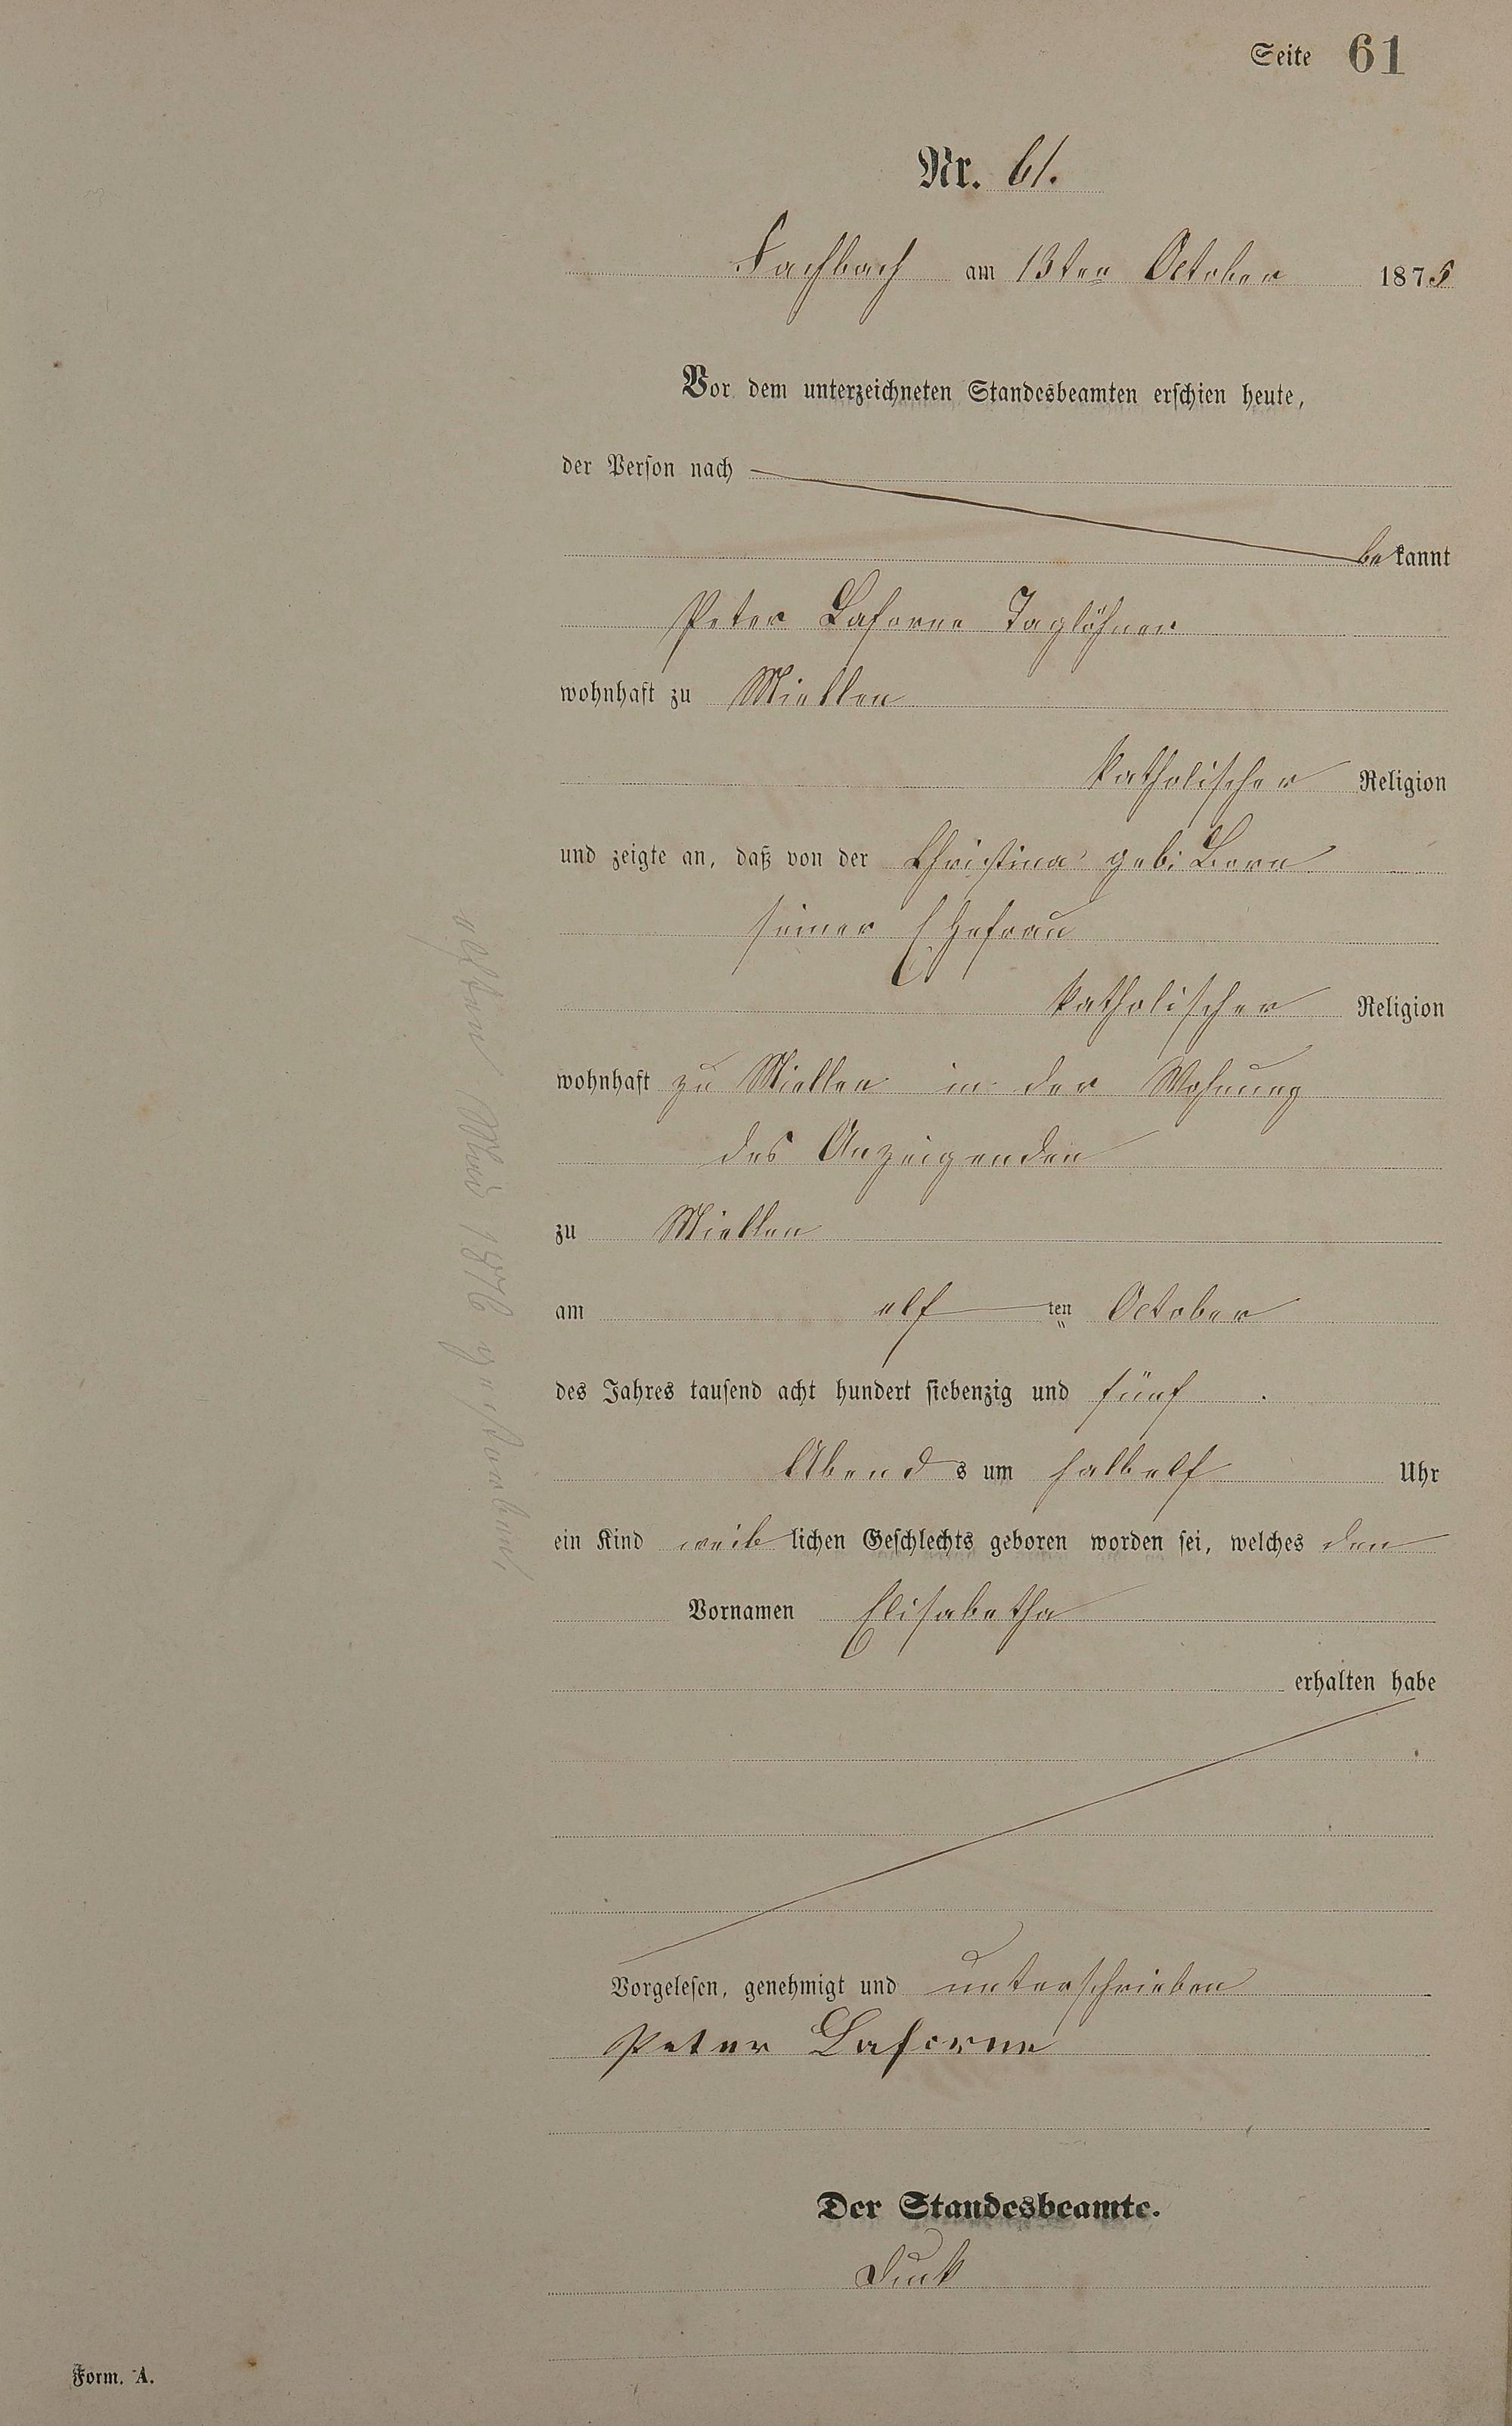 Seite 61
Nr. 61.
Fachbach am 13ten October 1875
Vor dem unterzeichneten Standesbeamten erschien heute,
der Person nach
bekannt
Peter Laforne Taglöhner
wohnhaft zu Miellen
katholischer Religion
und zeigte an, daß von der Christina geb. Born
seiner Ehefrau
katholischer Religion
wohnhaft zu Miellen in der Wohnung
des Anzeigenden
zu Miellen
am elf ten October
des Jahres tausend acht hundert siebenzig und fünf.
Abend s um halb elf Uhr
ein Kind weiblichen Geschlechts geboren worden sei, welches den
Vornamen Elisabetha
erhalten habe
Vorgelesen, genehmigt und unterschrieben
Peter Laforne
Der Standesbeamte.
1876 gestorben
Form. A.